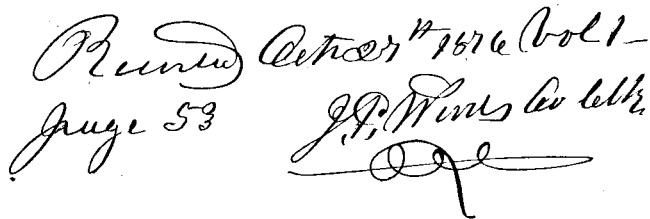 Recorded Octr 27th 1876 Vol 1
page 53 J. P. Wines Co Clk